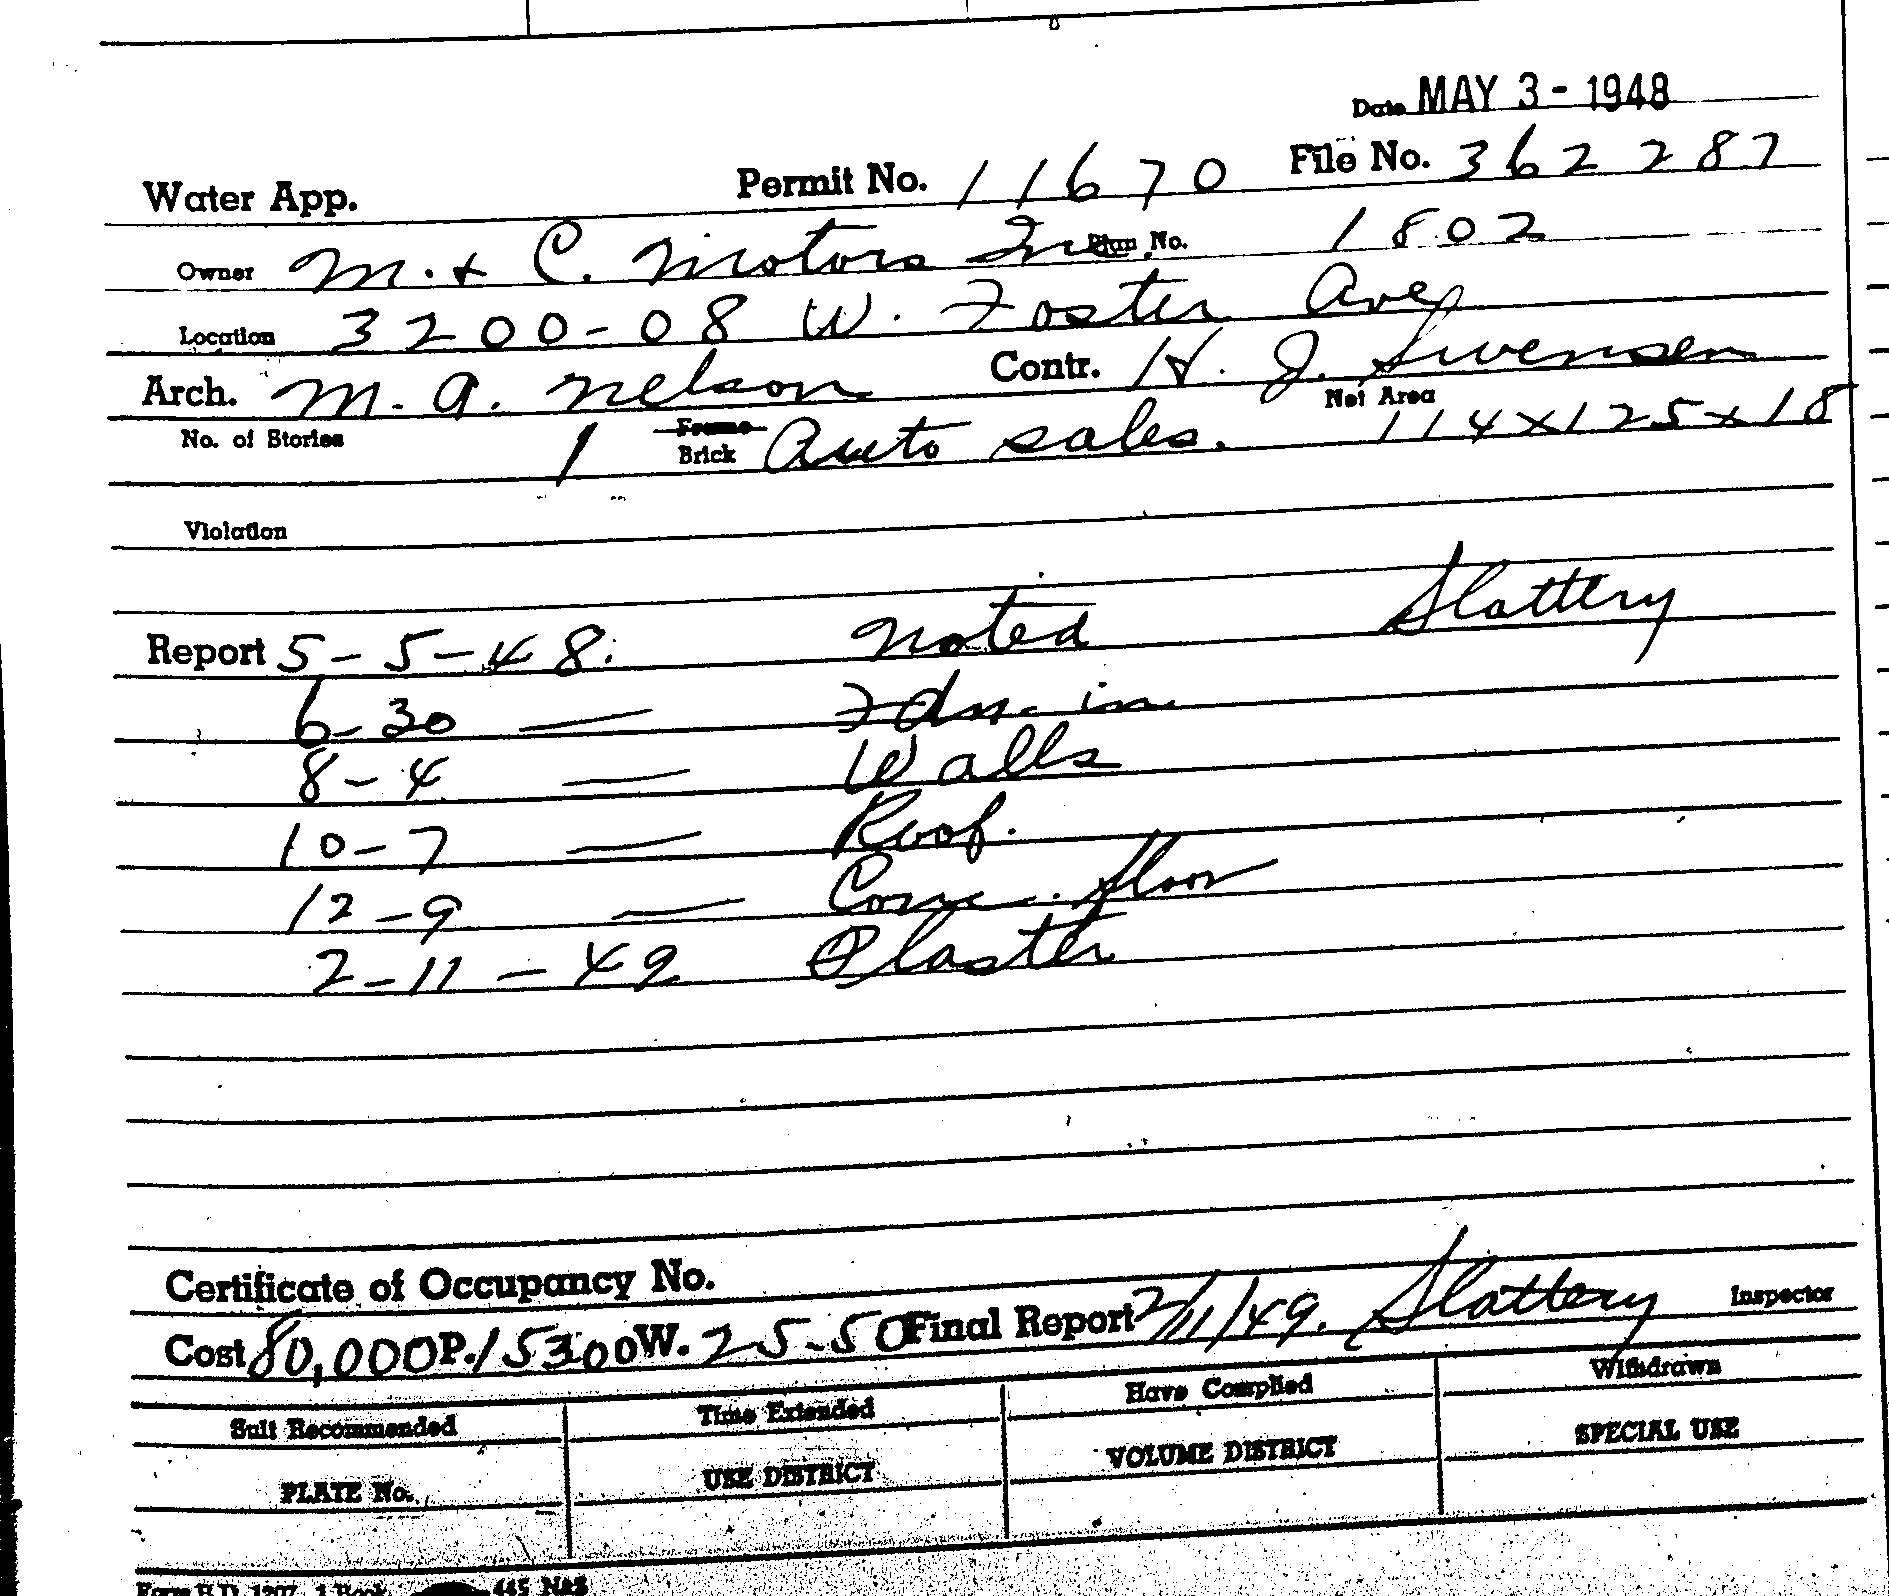 Date MAY 3 - 1948
Water App. Permit No. 11670 File No. 362287
Owner M. & C. Motors Inc. Plan No. 1802
Location 3200-08 W. Foster Ave
Arch. M. A. Nelson Contr. H. J. Swensen
No. of Stories 1 Frame Brick Auto sales. Net Area 114x125x18
Violation
Report 5-5-48. noted Slattery
6-30 — Fdn. in
8-4 — Walls
10-7 — Roof.
12-9 — Conc. floor
2-11-49 Plaster
Certificate of Occupancy No.
Cost 80,000 P. 15300 W. 25-50 Final Report 2/11/49. Slattery Inspector
Suit Recommended Time Extended Have Complied Withdrawn
PLATE No. USE DISTRICT VOLUME DISTRICT SPECIAL USE
Form B.D. 1207 445 N&S